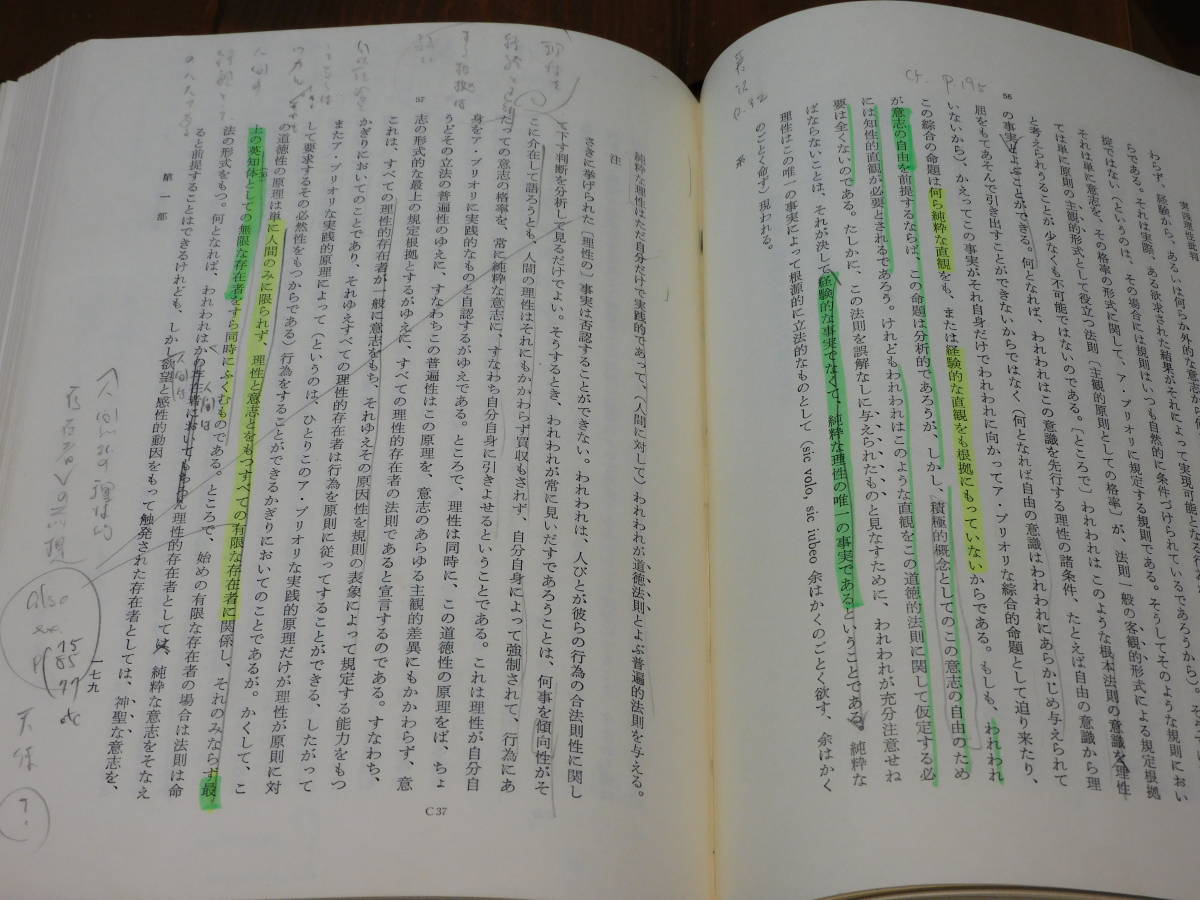 実践理性批判
わらず、経験から、あるいは何らか外的な意志か
らである。それは実際、ある欲求された結果がそれによって実現
それは単に意志を、その格率の形式に関して、ア・プリオリに規定する規則である。そうしてそのような規則におい
掟ではない（というのは、その場合には規則はいつも自然的に条件づけられているであろうから）。その
ては単に原則の主観的形式として役立つ法則〔主観的原則としての格率〕が、法則一般の客観的形式による規定根拠
と考えられうることが少なくも不可能ではないのである。〔ところで〕われわれはこのような根本法則の意識を理性
の事実とよぶことができる。何となれば、われわれはこの意識を先行する理性の諸条件、たとえば自由の意識から理
屈をもてあそんで引き出すことができないからではなく（何となれば自由の意識はわれわれにあらかじめ与えられて
いないから）、かえってこの事実がそれ自身だけでわれわれに向かってア・プリオリな綜合的命題として迫り来たり、
この綜合の命題は何ら純粋な直観をも、または経験的な直観をも根拠にもっていないからである。もしも、われわれ
が意志の自由を前提するならば、この命題は分析的であろうが、しかし、積極的概念としてのこの意志の自由のため
には知性的直観が必要とされるであろう。けれどもわれわれはこのような直観をこの道徳的法則に関して仮定する必
要は全くないのである。たしかに、この法則を誤解なしに与えられたものと見なすために、われわれが充分注意せね
ばならないことは、それが決して経験的な事実でなくて、純粋な理性の唯一の事実であるということである。純粋な
理性はこの唯一の事実によって根源的に立法的なものとして（sic volo, sic iubeo 余はかくのごとく欲す、余はかく
のごとく命ず）現われる。
56
cf. p.195
純粋な理性はただ自分だけで実践的であって、（人間に対して）われわれが道徳法則とよぶ普遍的法則を与える。
注
さきに挙げられた〔理性の〕事実は否認することができない。われわれは、人びとが彼らの行為の合法則性に関し
て下す判断を分析して見るだけでよい。そうするとき、われわれが常に見いだすであろうことは、何事を傾向性がそ
こに介在して語ろうとも、人間の理性はそれにもかかわらず買収もされず、自分自身によって強制されて、行為にあ
たっての意志の格率を、常に純粋な意志に、すなわち自分自身に引きよせるということである。これは理性が自分自
身をア・プリオリに実践的なものと自認するがゆえである。ところで、理性は同時に、この道徳性の原理をば、ちょ
うどその立法の普遍性のゆえに、すなわちこの普遍性はこの原理を、意志のあらゆる主観的差異にもかかわらず、意
志の形式的な最上の規定根拠とするがゆえに、すべての理性的存在者の法則であると宣言するのである。すなわち、
これは、すべての理性的存在者が一般に意志をもち、それゆえその原因性を規則の表象によって規定する能力をもつ
かぎりにおいてのことであり、それゆえすべての理性的存在者は行為を原則に従ってすることができる、したがって
またア・プリオリな実践的原理によって（というのは、ひとりこのア・プリオリな実践的原理だけが理性が原則に対
して要求するその必然性をもつからである）行為をすることができるかぎりにおいてのことであるが。かくして、こ
の道徳性の原理は単に人間のみに限られず、理性と意志とをもつすべての有限な存在者に関係し、それのみならず最
上の英知体としての無限な存在者をすら同時にふくむものである。ところで、始めの有限な存在者の場合は法則は命
法の形式をもつ。何となれば、われわれはかの存在者においてもちろん理性的存在者としては、純粋な意志をそなえ
ると前提することはできるけれども、しかし欲望と感性的動因をもって触発された存在者としては、神聖な意志を、
57
C 37
第一部
一七九
also
P
75
85
77